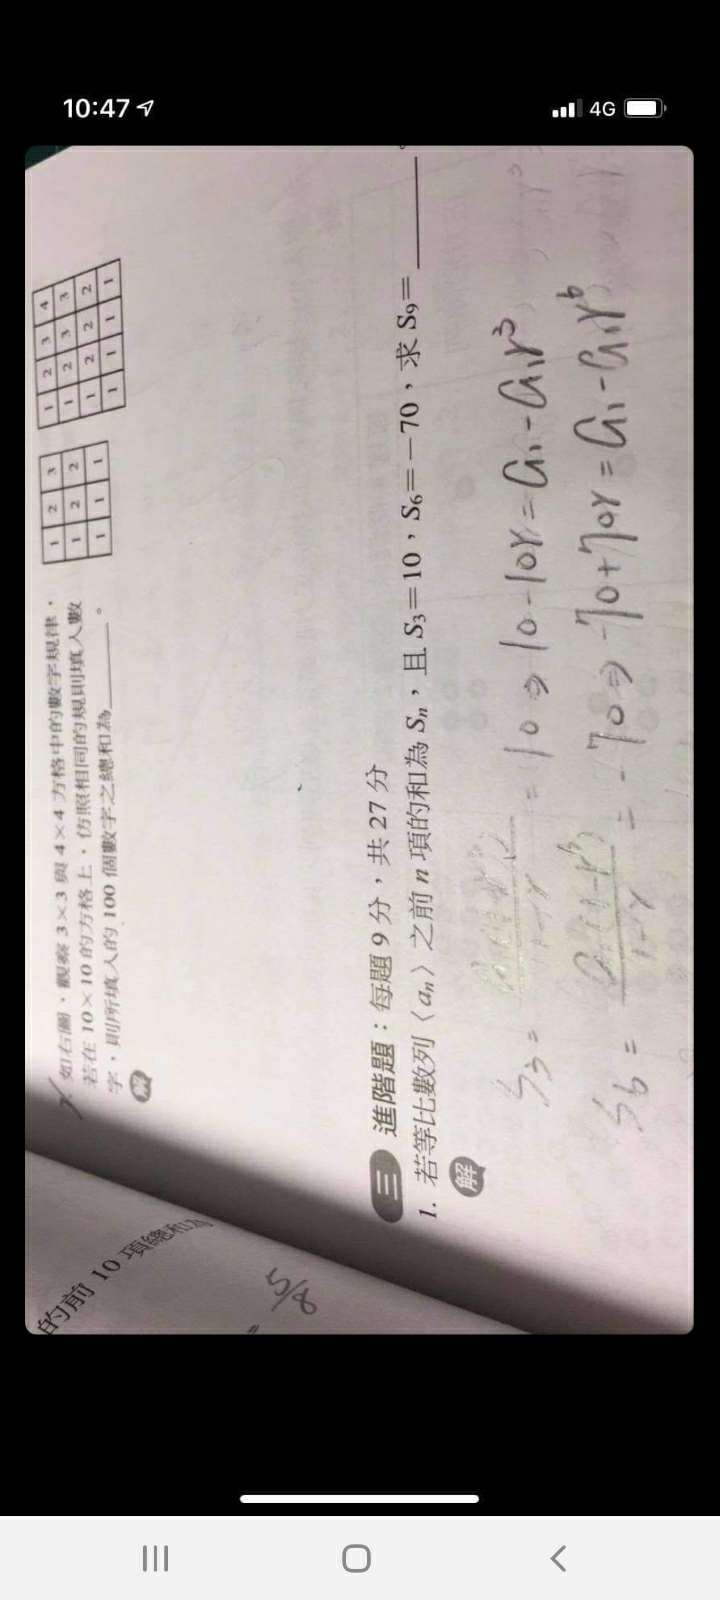 10:47
4G
的前 10 項總和為
= 5/8
如右圖，觀察 3×3 與 4×4 方格中的數字規律，
若在 10×10 的方格上，仿照相同的規則填入數
字，則所填入的 100 個數字之總和為______。
解
1 2 3
1 2 2
1 1 1
1 2 3 4
1 2 3 3
1 2 2 2
1 1 1 1
三 進階題：每題 9 分，共 27 分
1. 若等比數列〈aₙ〉之前 n 項的和為 Sₙ，且 S₃＝10，S₆＝－70，求 S₉＝______。
解
S₃ = = 10 ⇒ 10-10r = a₁-a₁r³
S₆ = a₁(1-r⁶)/1-r = -70 ⇒ -70+70r = a₁-a₁r⁶